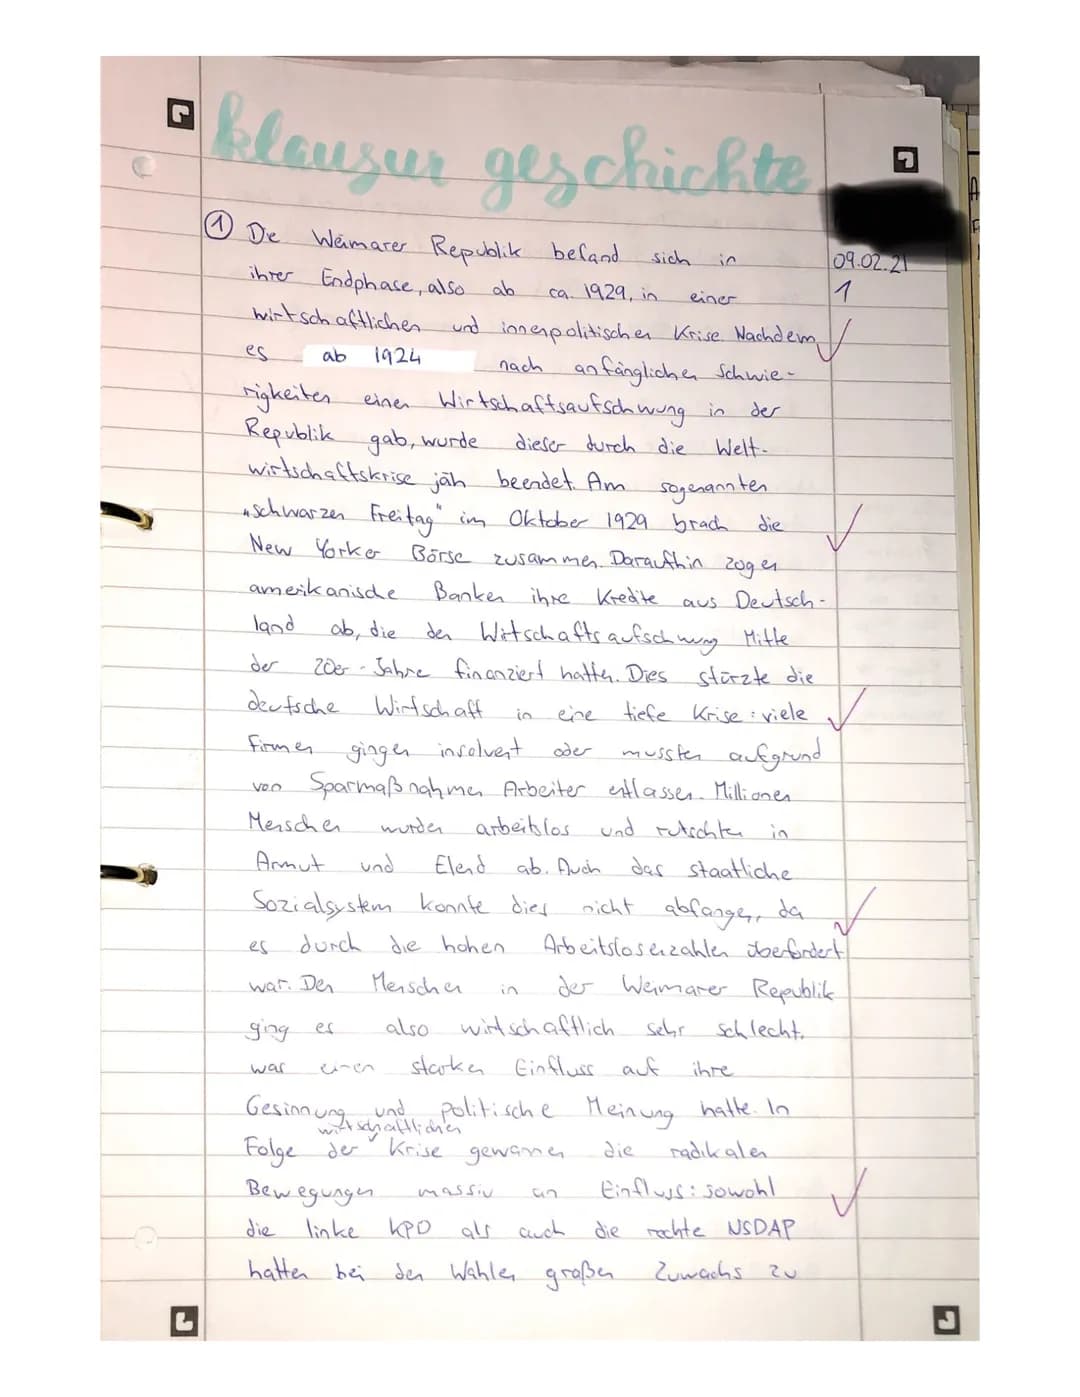 klausur geschichte
① Die Weimarer Republik befand sich in
09.02.21
ihrer Endphase, also ab ca. 1929, in einer
1
wirtschaftlichen und innenpolitischen Krise. Nachdem
es ab 1924 nach anfänglichen Schwie-
rigkeiten einen Wirtschaftsaufschwung in der
Republik gab, wurde dieser durch die Welt-
wirtschaftskrise jäh beendet. Am sogenannten
„schwarzen Freitag" im Oktober 1929 brach die
New Yorker Börse zusammen. Daraufhin zogen
amerikanische Banken ihre Kredite aus Deutsch-
land ab, die den Wirtschaftsaufschwung Mitte
der 20er-Jahre finanziert hatten. Dies stürzte die
deutsche Wirtschaft in eine tiefe Krise: viele
Firmen gingen insolvent oder mussten aufgrund
von Sparmaßnahmen Arbeiter entlassen. Millionen
Menschen wurden arbeitslos und rutschten in
Armut und Elend ab. Auch das staatliche
Sozialsystem konnte dies nicht abfangen, da
es durch die hohen Arbeitslosenzahlen überfordert
war. Den Menschen in der Weimarer Republik
ging es also wirtschaftlich sehr schlecht,
was einen starken Einfluss auf ihre
Gesinnung und politische Meinung hatte. In
wirtschaftlichen
Folge der Krise gewannen die radikalen
Bewegungen massiv an Einfluss: sowohl
die linke KPD als auch die rechte NSDAP
hatten bei den Wahlen großen Zuwachs zu